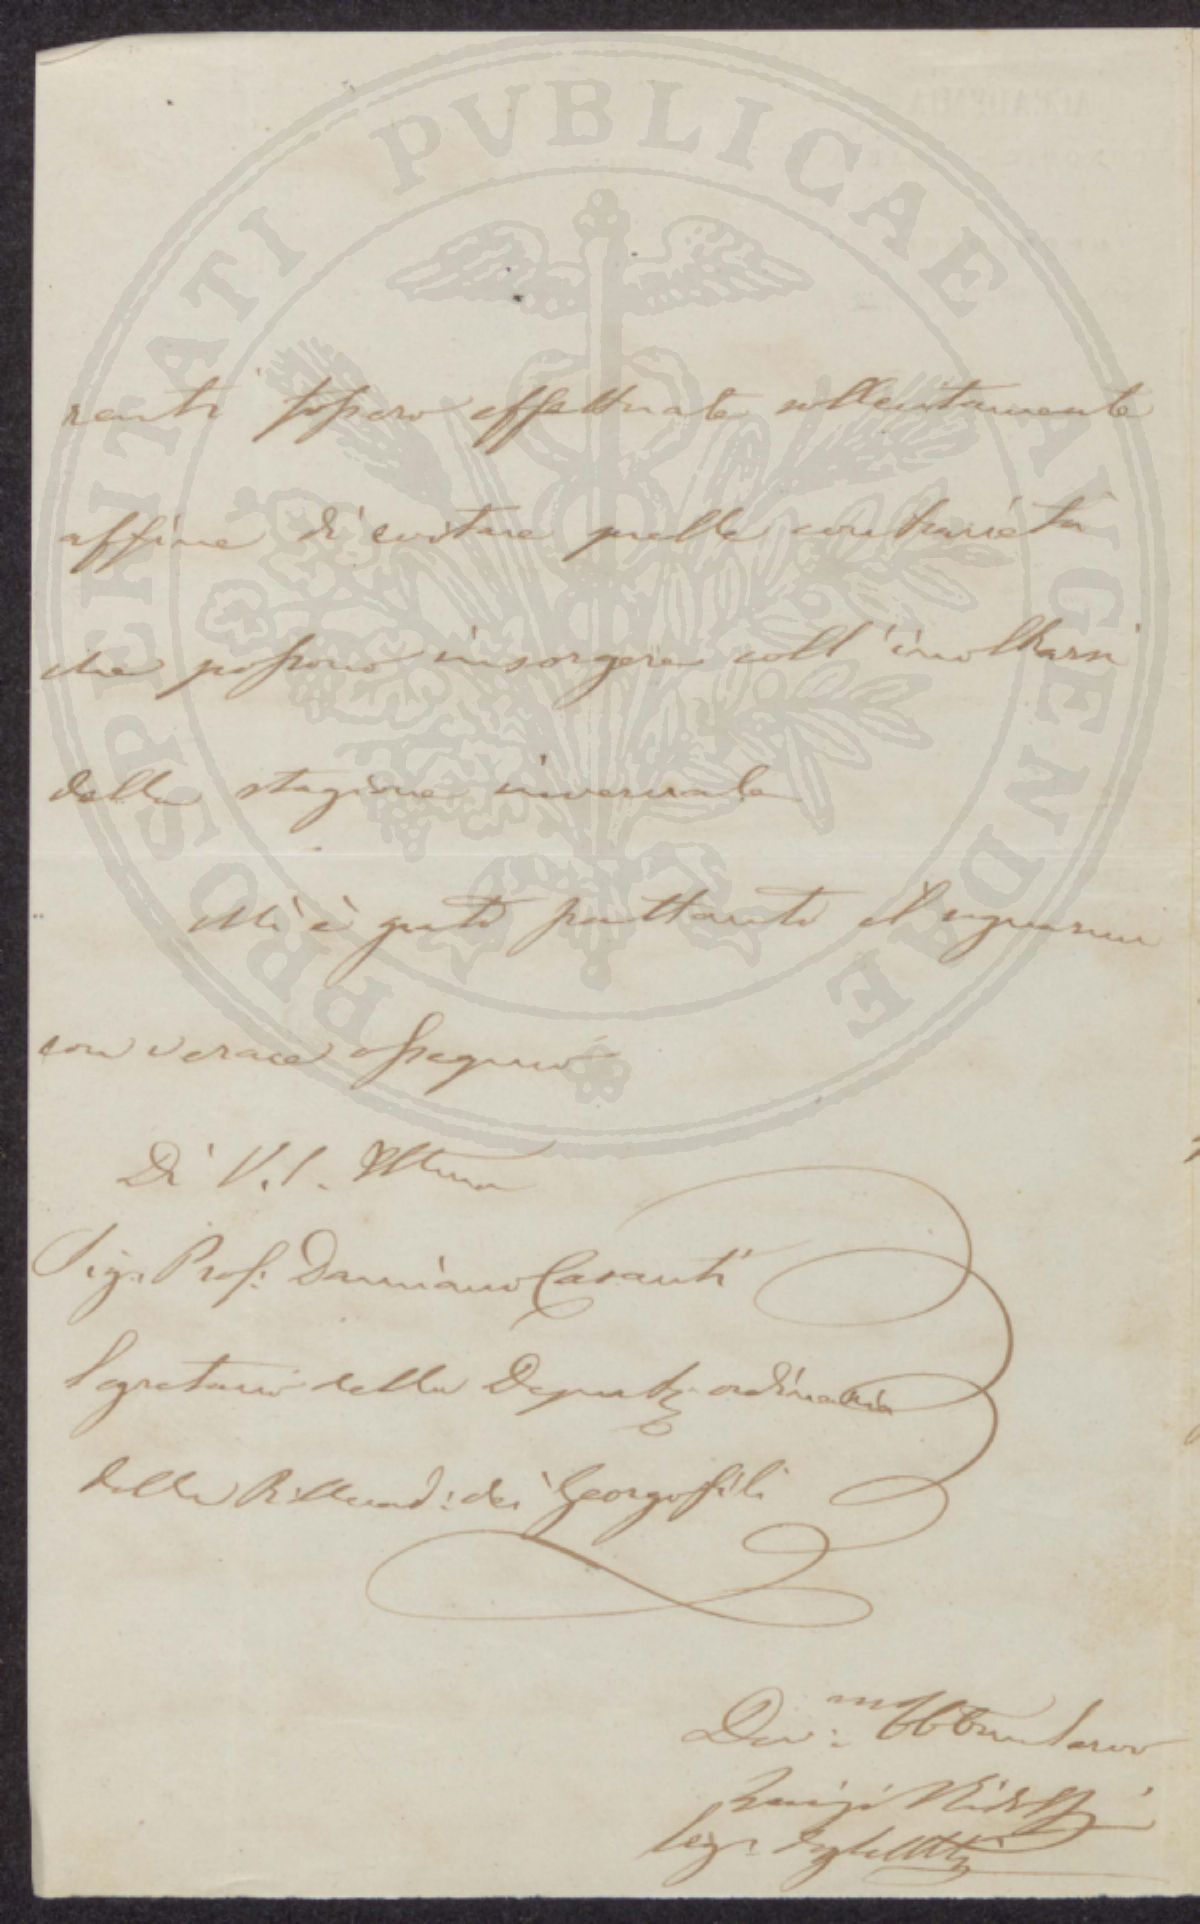 PROSPERITATI PUBLICAE AUGENDAE
renti fossero effettuate sollecitamente
affine di evitare quelle contrarietà
che possono insorgere coll'inoltrarsi
della stagione invernale
Mi è grato pertanto il segnarmi
con verace ossequio
Di V. S. Illma
Sig. Prof: Damiano Casanti
Segretario della Deputaz. ordinaria
della R. Accad: dei Georgofili
Dev:mo Obb Servo
Luigi Ridolfi
Segr. degli Atti